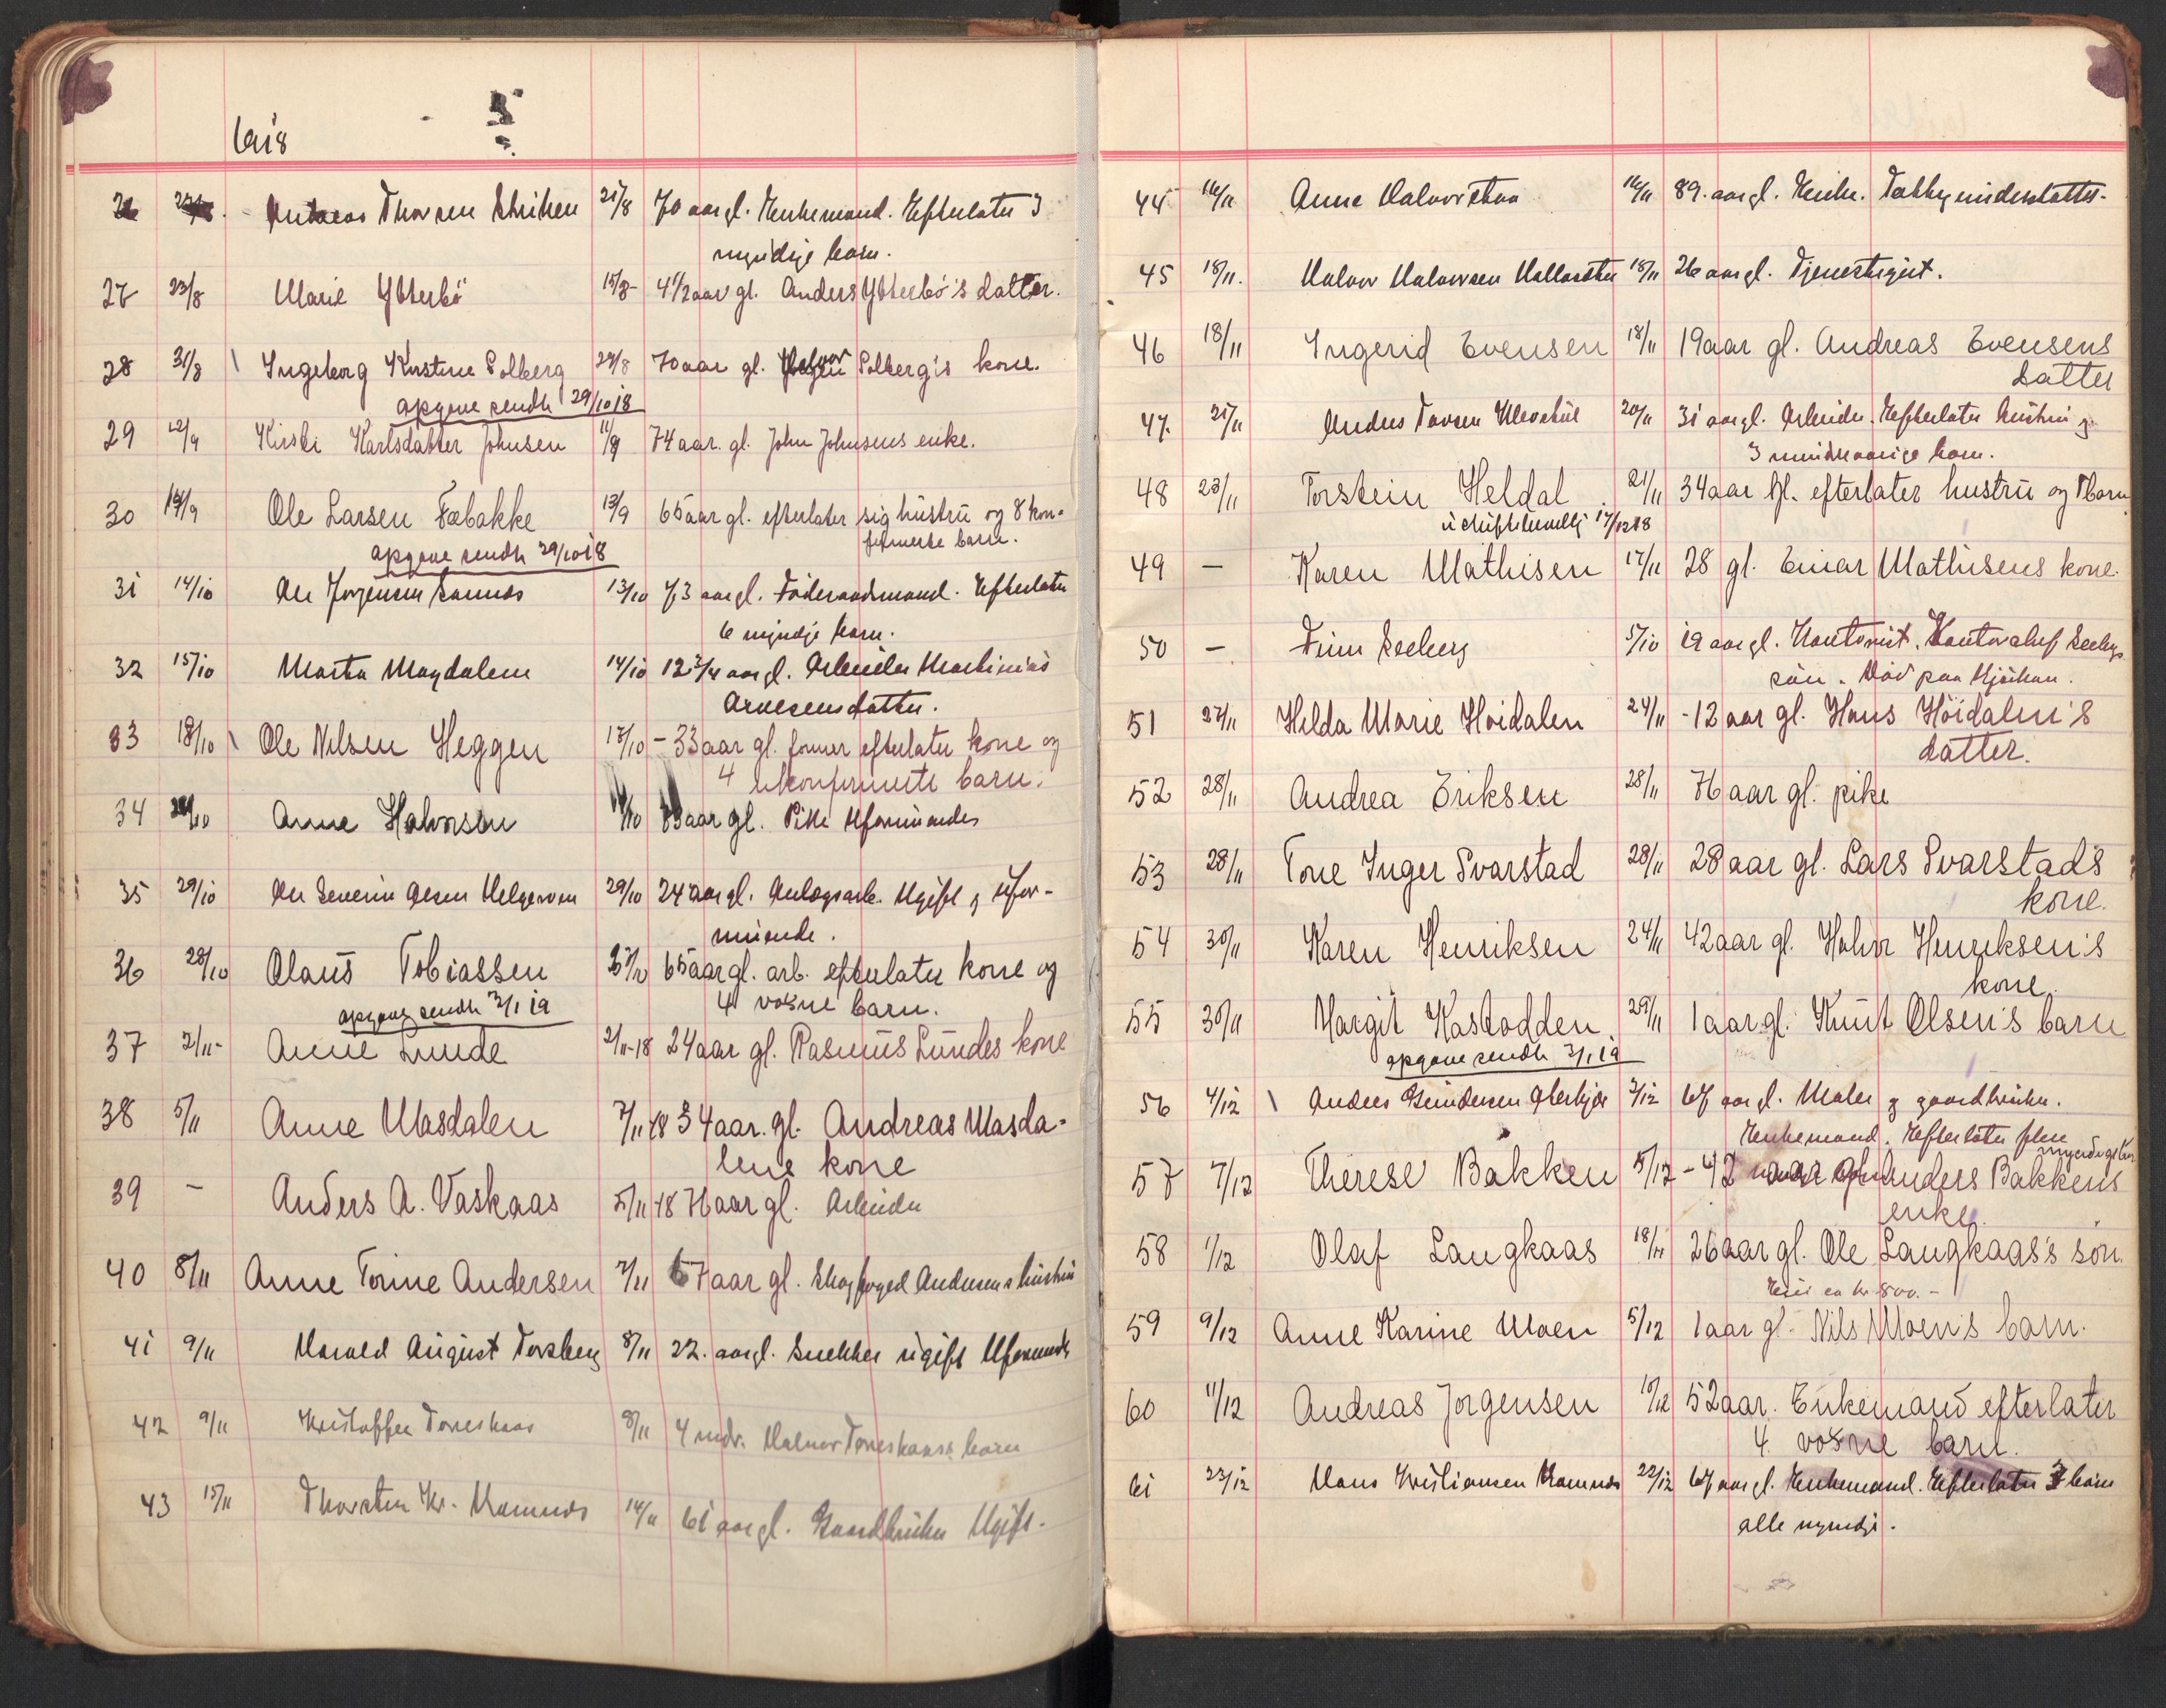 1918
26 22/8 Andreas Thorsen 21/8 70 aar gl. Enkemand. Efterlater 3
myndige barn.
27 23/8 Marie Ytterbö 15/8 4 1/2 aar gl. Anders Ytterbö's datter.
28 31/8 Ingeborg Kirstine Solberg 29/8 70 aar gl. Halvor Solberg's kone.
opgave sendt 29/10 18
29 12/9 Kirsti Karlsdatter Johnsen 11/9 74 aar. gl. John Johnsens enke.
30 14/9 Ole Larsen Fæbakke 13/9 65 aar gl. efterlater sig hustru og 8 kon-
firmerte barn.
opgave sendt 29/10 18
31 14/10 Ole Jørgensen 13/10 73 aar gl. Föderaadsmand. Efterlater
6 myndje barn.
32 15/10 Marta Magdalene 14/10 12 3/4 aar gl. Arbeider Martinius
Arnesens datter.
33 18/10 Ole Nilsen Heggen 17/10 - 33 aar gl. former efterlater kone og
4 ukonfirmerte barn.
34 Anne Halvorsen 83 aar gl. Pike Uformuendes
35 29/10 Ole Severin Olsen 29/10 24 aar gl. Anlægsarb. Ugift og ufor-
muende.
36 28/10 Olaus Tobiassen 65 aar gl. arb. efterlater kone og
4 voxne barn.
opgave sendt 2/1 19
37 2/11- Anne Lunde 2/11-18 24 aar gl. Rasmus Lundes kone
38 5/11 Anne Masdalen 7/11 18 34 aar. gl. Andreas Masda-
lens kone
39 - Anders A. Vaskaas 5/11 18 71 aar gl. Arbeider
40 8/11 Anne Torine Andersen 7/11 67 aar gl. Skogfoged Andersens hustru
41 9/11 Harald August Torsberg 8/11 22. aar gl. Snekker ugift Uformuende
42 9/11 Kristoffer Toreskaas 8/11 4 mdr. Halvor Toreskaas's barn
43 15/11 Thorsten Kr. Kamnes 14/11 61 aar gl. Gaardbruker Ugift.
44 16/11 Anne Halvorsdaa 16/11 89. aar gl. Enke. Fattigunderstøttet.
45 18/11. Halvor Halvorsen 18/11 26 aar gl. Tjenestegut.
46 18/11 Ingerid Evensen 18/11 19 aar gl. Andreas Evensens
datter
47. 21/11 Anders Tovsen 20/11 31 aar gl. Arbeider. Efterlater hustru og
3 mindreaarige barn.
48 23/11 Torstein Heldal 21/11 34 aar gl. efterlater hustru og 1 barn
uskiftebevillg 17/12 18
49 - Karen Mathisen 17/11 28 gl. Einar Mathisens kone.
50 - Finn Seeberg 5/10 19 aar gl. Kontorist. Kontorchef Seebergs
sön. Död paa Rjukan.
51 27/11 Helda Marie Höidalen 24/11 - 12 aar gl. Hans Höidalen's
datter.
52 28/11 Andrea Eriksen 28/11 71 aar gl. pike
53 28/11 Tone Inger Svarstad 28/11 28 aar gl. Lars Svarstad's
kone.
54 30/11 Karen Henriksen 24/11 42 aar gl. Halvor Henriksen's
kone.
55 30/11 Margit Kastodden 29/11 1 aar gl. Knut Olsen's barn
opgave sendt 3/1 19
56 4/12 Anders Gundersen 3/12 67 aar gl. Maler og gaardbruker.
Enkemand. Efterlater flere
myndige barn
57 7/12 Therese Bakken 5/12 - 42 aar gl. Anders Bakkens
enke.
58 1/12 Olaf Langkaas 18/11 26 aar gl. Ole Langkaas's sön.
Eier ca kr 800.-
59 9/12 Anne Karine Moen 5/12 1 aar gl. Nils Moen's barn.
60 11/12 Andreas Jorgensen 10/12 52 aar. Enkemand efterlater
4. voxne barn.
61 23/12 Hans Kristiansen Kamnes 22/12 67 aar gl. Enkemand. Efterlater 3 barn
alle myndje.